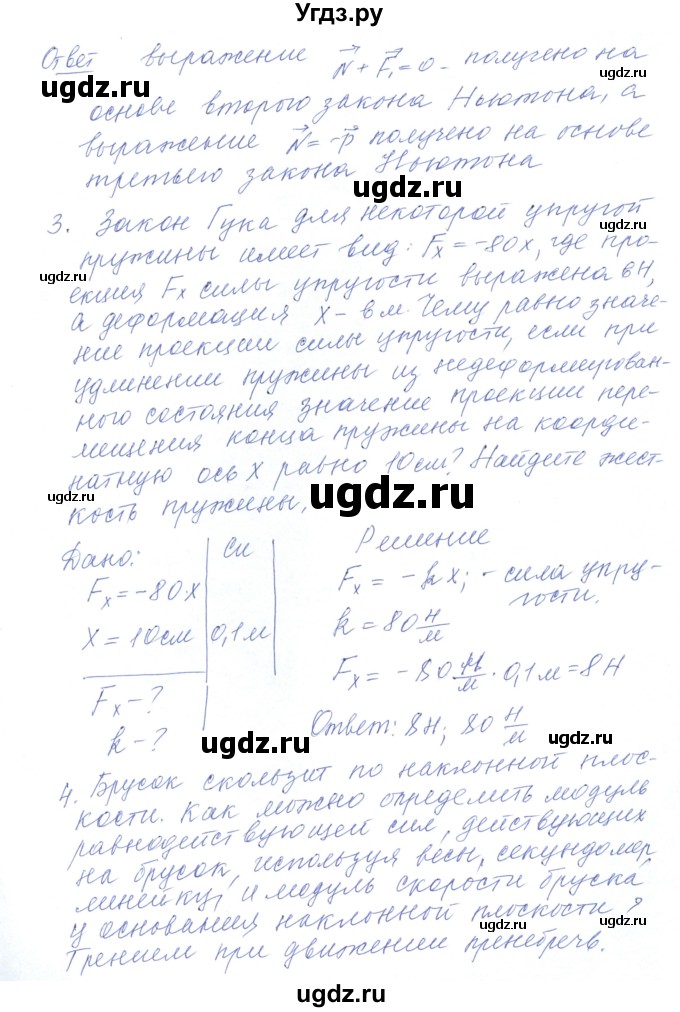 Угдз.ру
Ответ выражение N⃗ + F⃗₁ = 0 - получено на
основе второго закона Ньютона, а
выражение N⃗ = -P⃗ получено на основе
третьего закона Ньютона
3. Закон Гука для некоторой упругой
пружины имеет вид: Fₓ = -80x, где про-
екция Fₓ силы упругости выражена в Н,
а деформация x - в м. Чему равно значе-
ние проекции силы упругости, если при
удлинении пружины из недеформирован-
ного состояния значение проекции пере-
мещения конца пружины на коорди-
натную ось X равно 10см? Найдите жест-
кость пружины,
Дано:
Fₓ = -80x
x = 10см
Fₓ - ?
k - ?
Си
0,1м
Решение
Fₓ = -kx; - сила упру-
гости.
k = 80 Н/м
Fₓ = -80 Н/м · 0,1м = 8Н
Ответ: 8Н; 80 Н/м
4. Брусок скользит по наклонной плос-
кости. Как можно определить модуль
равнодействующей сил, действующих
на брусок, используя весы, секундомер,
линейку, и модуль скорости бруска
у основания наклонной плоскости?
Трением при движении пренебречь.
ugdz.ru
ugdz.ru
ugdz.ru
ugdz.ru
ugdz.ru
ugdz.ru
ugdz.ru
ugdz.ru
ugdz.ru
ugdz.ru
ugdz.ru
ugdz.ru
ugdz.ru